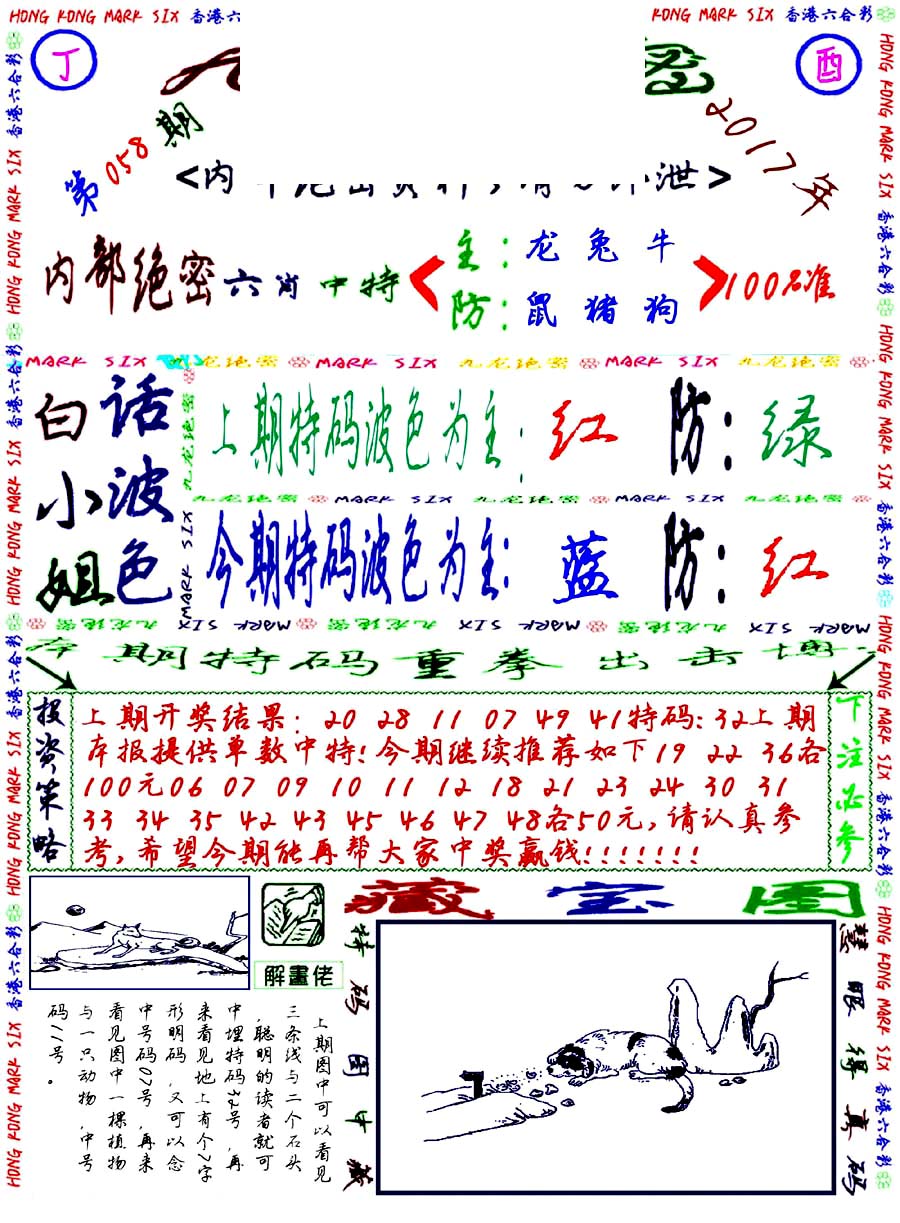 HONG KONG MARK SIX 香港六合彩
HONG KONG MARK SIX 香港六合彩
丁
酉
第058期
2017年
<内
泄>
内部绝密六肖中特
主:龙兔牛
防:鼠猪狗
100%准
MARK SIX 九龙绝密 MARK SIX 九龙绝密 MARK SIX 九龙绝密
白话
小波
姐色
上期特码波色为主:红 防:绿
九龙绝密 MARK SIX 九龙绝密 MARK SIX 九龙绝密
今期特码波色为主:蓝 防:红
九龙绝密 MARK SIX 九龙绝密 MARK SIX 九龙绝密 MARK SIX
期特码重拳出击博
投资策略
上期开奖结果: 20 28 11 07 49 41特码:32上期
本报提供单数中特!今期继续推荐如下19 22 36各
100元06 07 09 10 11 12 18 21 23 24 30 31
33 34 35 42 43 45 46 47 48各50元,请认真参
考,希望今期能再帮大家中奖赢钱!!!!!!!
下注必参
藏宝图
解畫佬
特码图中藏
慧眼得真码
上期图中可以看见
三条线与二个石头
,聪明的读者就可
中埋特码32号,再
来看见地上有个7字
形明码,又可以念
中号码07号,再来
看见图中一棵植物
与一只动物,中号
码11号。